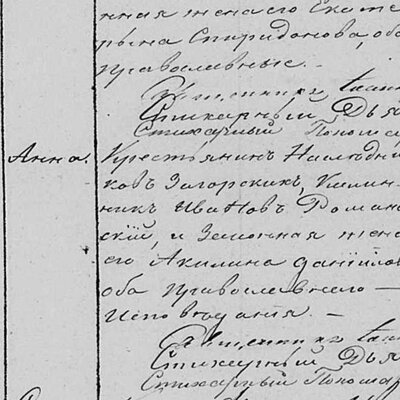 нная жена его Екате
рина Спиридонова, оба
православные. –
Священникъ
Стихарный Дья
Стихарный Пономар
Анна. Крестьянинъ Наслѣдни
ковъ Загорскихъ,
никъ Ивановъ Роман
скій, и Законная жена
его Акилина Даніилов
оба православнаго –
Исповѣданія. –
Священникъ
Стихарный Дья
Стихарный Пономар